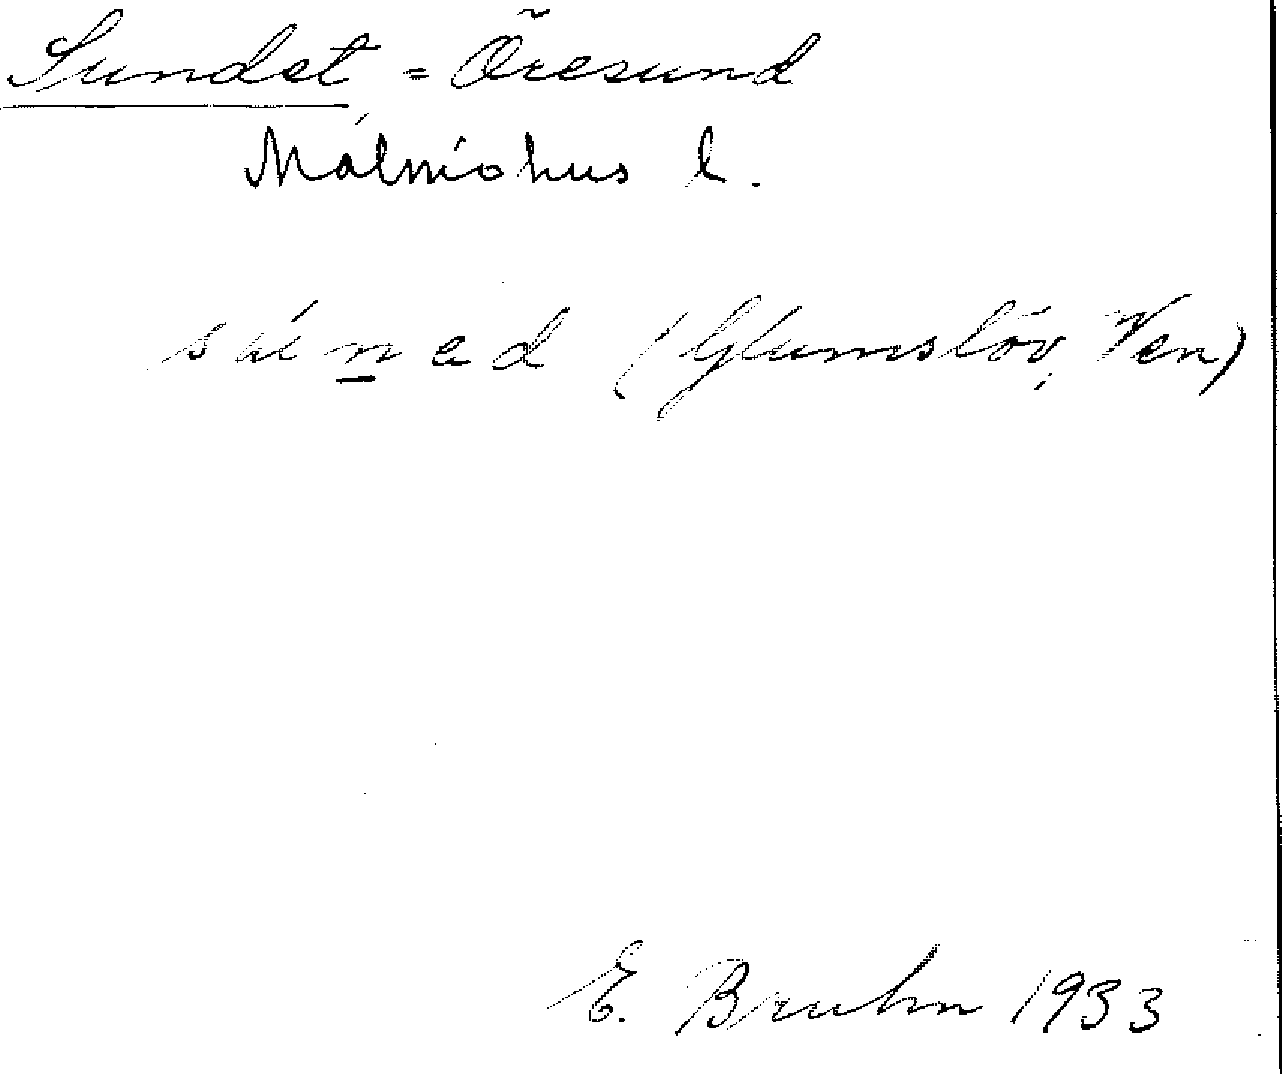 Sundet = Öresund
Malmöhus l.
súned (Glumslöv, Ven)
E. Bruhn 1933